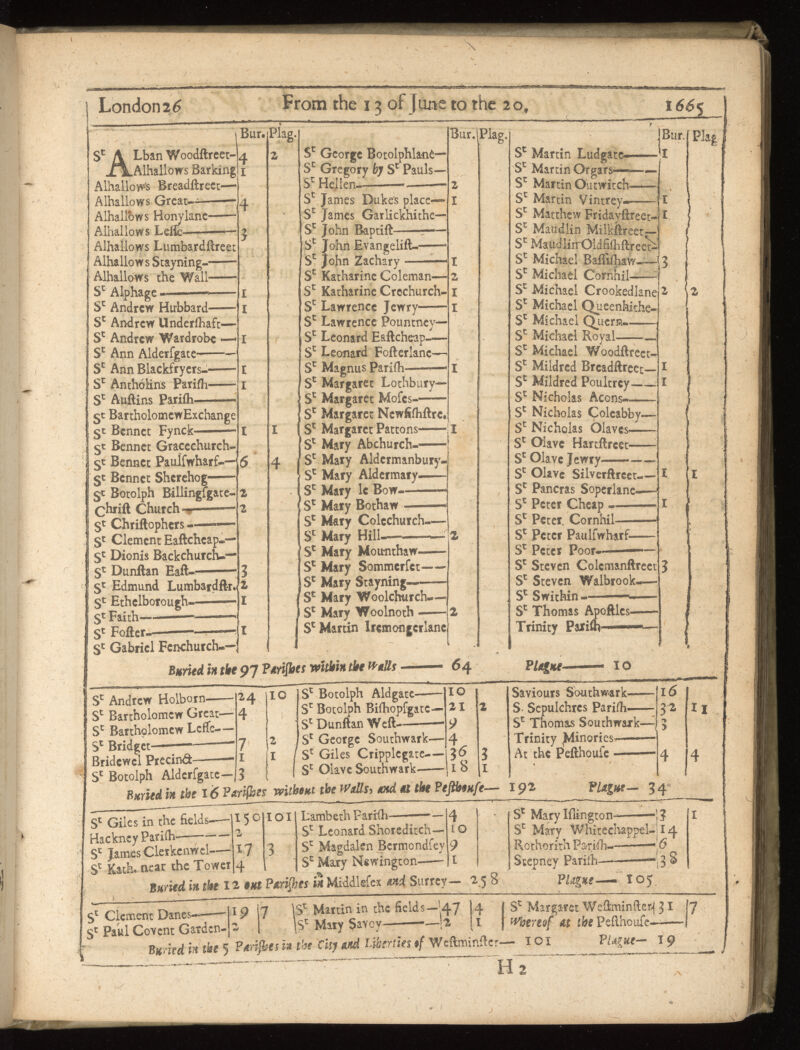 London 26 From the 13 of June to the 20. 1665
Bur. Plag.
St ALban Woodstreet- 4 2
Alhallows Barking 1
Alhallows Breadstreet—
Alhallows Great—— 4
Alhallows Honylane——
Alhallows Lesse—— 3
Alhallows Lumbardstreet
Alhallows Stayning-——
Alhallows the Wall——
St Alphage —— 1
St Andrew Hubbard—— 1
St Andrew Undershaft—
St Andrew Wardrobe — 1
St Ann Aldersgate——
St Ann Blackfryers-—— 1
St Antholins Parish—— 1
St Austins Parish——
St Bartholomew Exchange
St Bennet Fynck—— 1 1
St Bennet Gracechurch-
St Bennet Paulswharf-— 6 4
St Bennet Sherehog——
St Botolph Billingsgate- 2
Christ Church —— 2
St Christophers -——
St Clement Eastcheap-—
St Dionis Backchurch-—
St Dunstan East-—— 3
St Edmund Lumbardstr. 2
St Ethelborough-—— 1
St Faith——
St Foster-—— 1
St Gabriel Fenchurch-—
Bur. Plag.
St George Botolphlane—
St Gregory by St Pauls—
St Hellen-—— 2
St James Dukes place— 1
St James Garlickhithe—
St John Baptist——
St John Evangelist-——
St John Zachary —— 1
St Katharine Coleman— 2
St Katharine Crechurch- 1
St Lawrence Jewry—— 1
St Lawrence Pountney—
St Leonard Eastcheap-——
St Leonard Fosterlane—
St Magnus Parish—— 1
St Margaret Lothbury—
St Margaret Moses-——
St Margaret Newfishstre.
St Margaret Pattons—— 1
St Mary Abchurch-——
St Mary Aldermanbury-
St Mary Aldermary——
St Mary le Bow-——
St Mary Bothaw ——
St Mary Colechurch-—
St Mary Hill-—— 2
St Mary Mounthaw——
St Mary Sommerset——
St Mary Stayning-——
St Mary Woolchurch-—
St Mary Woolnoth —— 2
St Martin Iremongerlane
Bur. Plag
St Martin Ludgate-—— 1
St Martin Orgars-——
St Martin Outwitch——
St Martin Vintrey-—— 1
St Matthew Fridaystreet- 1
St Maudlin Milkstreet-—
St Maudlin Oldfishstreet-
St Michael Bassishaw-— 3
St Michael Cornhil——
St Michael Crookedlane 2 2
St Michael Queenhithe-
St Michael Quern-——
St Michael Royal——
St Michael Woodstreet-
St Mildred Breadstreet— 1
St Mildred Poultrey—— 1
St Nicholas Acons-——
St Nicholas Coleabby-—
St Nicholas Olaves-——
St Olave Hartstreet——
St Olave Jewry-——
St Olave Silverstreet-— 1 1
St Pancras Soperlane-—
St Peter Cheap -—— 1
St Peter Cornhil——
St Peter Paulswharf——
St Peter Poor-——
St Steven Colemanstreet 3
St Steven Walbrook-——
St Swithin-——
St Thomas Apostles——
Trinity Parish——
Buried in the 97 Parishes within the Walls —— 64 Plague—— 10
St Andrew Holborn—— 24 10
St Bartholomew Great— 4
St Bartholomew Lesse-—
St Bridget —— 7 2
Bridewel Precinct—— 1 1
St Botolph Aldersgate— 3
St Botolph Aldgate—— 10
St Botolph Bishopsgate— 21 2
St Dunstan West-—— 9
St George Southwark— 4
St Giles Cripplegate-— 36 3
St Olave Southwark—— 18 1
Saviours Southwark—— 16
S. Sepulchres Parish—— 32 11
St Thomas Southwark— 3
Trinity Minories-——
At the Pesthouse —— 4 4
Buried in the 16 Parishes without the Walls, and at the Pesthouse— 192 Plague— 34
St Giles in the fields-— 150 101
Hackney Parish—— 2
St James Clerkenwel-— 17 3
St Kath. near the Tower 4
Lambeth Parish—— 4
St Leonard Shoreditch— 10
St Magdalen Bermondsey 9
St Mary Newington—— 1
St Mary Islington—— 3 1
St Mary Whitechappel- 14
Rothorith Parish-—— 6
Stepney Parish—— 38
Buried in the 12 out Parishes in Middlesex and Surrey— 258 Plague— 105
St Clement Danes-—— 19 7
St Paul Covent Garden- 2
St Martin in the fields— 47 4
St Mary Savoy—— 2 1
St Margaret Westminster 31 7
Whereof at the Pesthouse-——
Buried in the 5 Parishes in the City and Liberties of Westminster— 101 Plague— 19
H 2